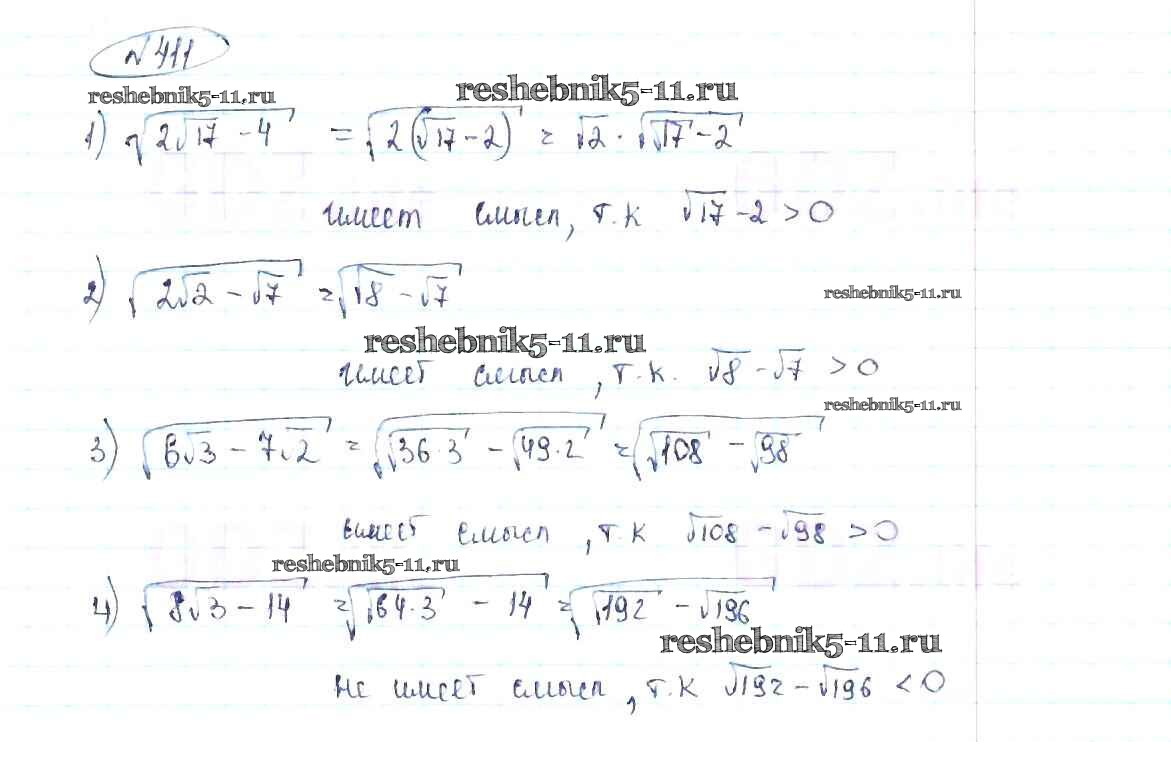 № 411
reshebnik5-11.ru
reshebnik5-11.ru
1) √(2√17 - 4) = √(2(√17 - 2)) = √2 · √(√17 - 2)
имеет смысл, т.к √17 - 2 > 0
2) √(2√2 - √7) = √(√8 - √7)
reshebnik5-11.ru
reshebnik5-11.ru
имеет смысл, т.к. √8 - √7 > 0
reshebnik5-11.ru
3) √(6√3 - 7√2) = √(√36·3 - √49·2) = √(√108 - √98)
имеет смысл, т.к √108 - √98 > 0
reshebnik5-11.ru
4) √(8√3 - 14) = √(√64·3 - 14) = √(√192 - √196)
reshebnik5-11.ru
не имеет смысл, т.к √192 - √196 < 0